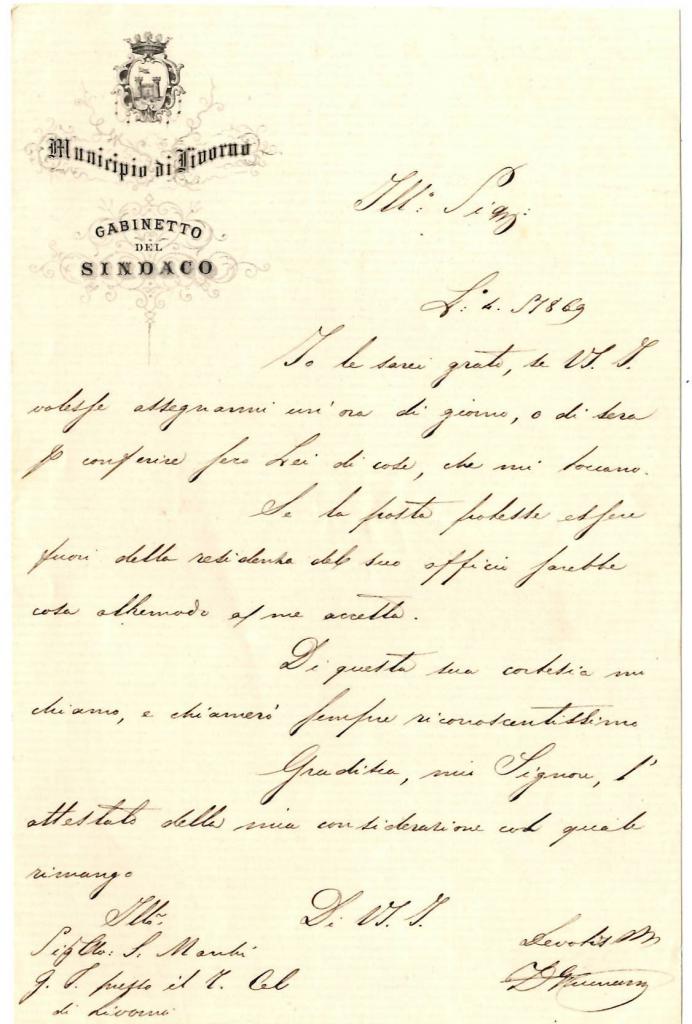 Municipio di Livorno
GABINETTO
DEL
SINDACO
Ill.o Sig.
L. 4. 1869
Io le sarei grato, se VS. I.
volesse assegnarmi un'ora di giorno, o di sera
conferire seco Lei di cose, che mi toccano.
Se la posta potesse essere
fuori della residenza del suo officio sarebbe
cosa oltremodo a me accetta.
Di questa sua cortesia mi
chiamo, e chiamerò sempre riconoscentissimo
Gradisca, mio Signore, l'
attestato della mia considerazione col quale
rimango
Di VS. I.
Devotis
Illo.
Sig S.
presso il T.
di Livorno